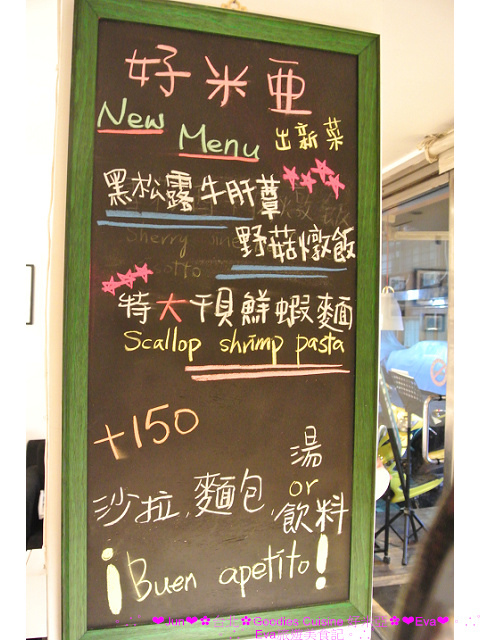 好米亞
New
Menu 出新菜
黑松露牛肝蕈
野菇燉飯
Sherry
特大干貝鮮蝦麵
Scallop shrimp pasta
+150
沙拉, 麵包, 湯 or 飲料
¡Buen apetito!
Goodies Cuisine
❤Eva❤